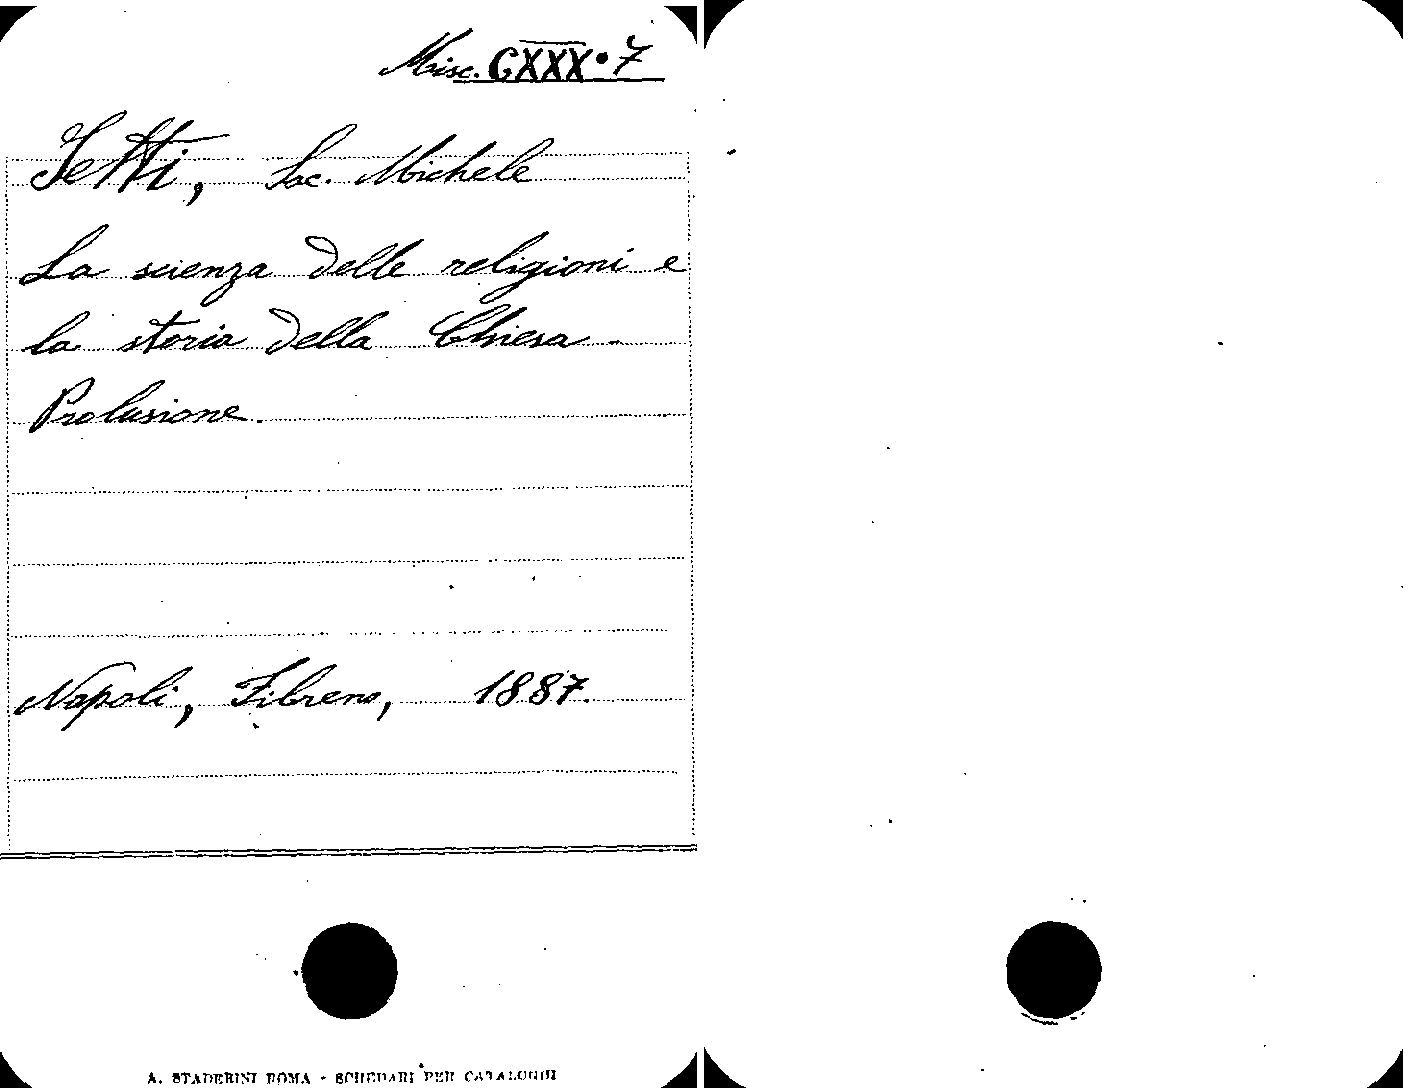 Misc. CXXX • 7
Jetti, Sac. Michele
La scienza delle religioni e
la storia della Chiesa.
Prolusione.
Napoli, Fibreno, 1887.
A. STADERINI ROMA - SCHEDARI PER CATALOGHI